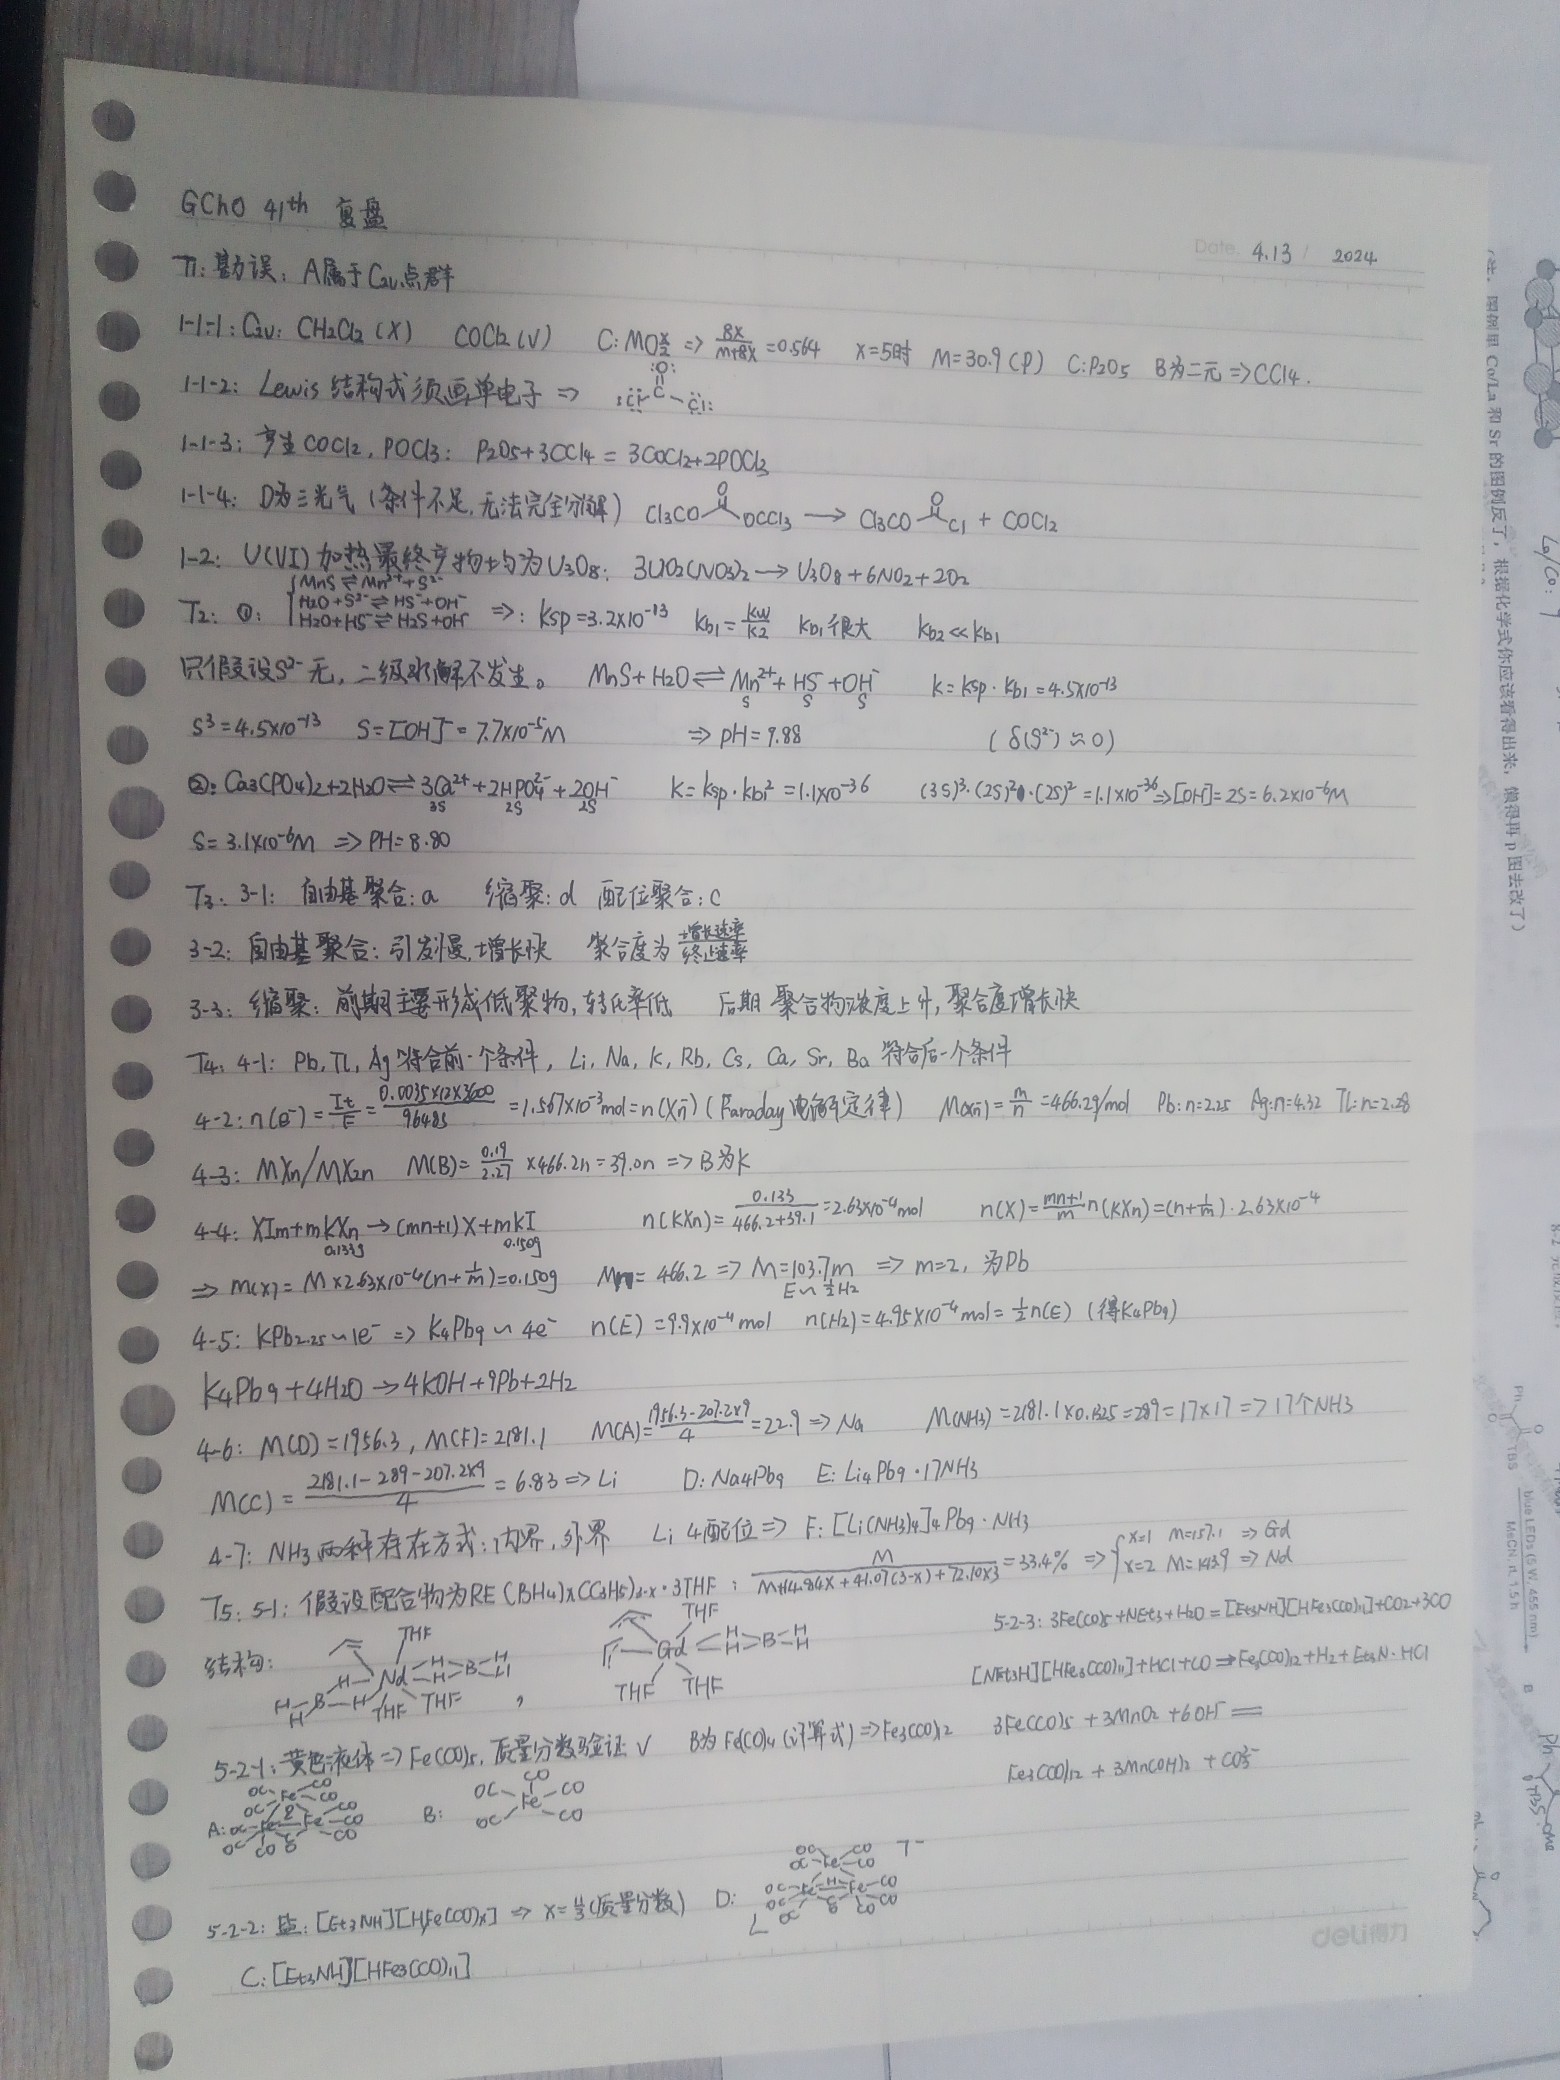 GChO 41th 复盘
Date. 4.13 / 2024
T1: 勘误: A属于C2v点群
1-1-1: C2v: CH2Cl2 (X) COCl2 (√) C: MOx/2 => 8x/(M+8x) =0.564 x=5时 M=30.9 (P) C:P2O5 B为二元 => CCl4.
1-1-2: Lewis 结构式须画单电子 => :O: C :Cl :Cl:
1-1-3: 产生 COCl2, POCl3: P2O5+3CCl4 = 3COCl2+2POCl3
1-1-4: D为三光气 (条件不足, 无法完全分解) Cl3CO O OCCl3 → Cl3CO O Cl + COCl2
1-2: U(VI) 加热最终产物均为 U3O8: 3UO2(NO3)2 → U3O8 + 6NO2 + 2O2
T2: ①: { MnS ⇌ Mn2+ + S2-
H2O + S2- ⇌ HS- + OH-
H2O + HS- ⇌ H2S + OH- => : Ksp = 3.2×10^-13 Kb1 = Kw/K2 Kb1 很大 Kb2 << Kb1
只假设S2-无, 二级水解不发生。 MnS + H2O ⇌ Mn2+ + HS- + OH- K = Ksp · Kb1 = 4.5×10^-13
S S S
S^3 = 4.5×10^-13 S = [OH]- = 7.7×10^-5 M => pH = 9.88 (δ(S2-) ≈ 0)
②: Ca3(PO4)2 + 2H2O ⇌ 3Ca2+ + 2HPO4 2- + 2OH- K = Ksp · Kb1^2 = 1.1×10^-36 (3S)^3 · (2S)^2 · (2S)^2 = 1.1×10^-36 => [OH] = 2S = 6.2×10^-6 M
3S 2S 2S
S = 3.1×10^-6 M => PH = 8.80
T3: 3-1: 自由基聚合: a 缩聚: d 配位聚合: c
3-2: 自由基聚合: 引发慢, 增长快 聚合度为 增长速率/终止速率
3-3: 缩聚: 前期主要形成低聚物, 转化率低 后期 聚合物浓度上升, 聚合度增长快
T4: 4-1: Pb, Tl, Ag 符合前一个条件, Li, Na, K, Rb, Cs, Ca, Sr, Ba 符合后一个条件
4-2: n(e-) = It/F = 0.0035×12×3600/96485 = 1.567×10^-3 mol = n(Xn-) (Faraday 电解定律) M(Xn-) = m/n = 466.2g/mol Pb: n=2.25 Ag: n=4.32 Tl: n=2.28
4-3: MXn/MX2n M(B) = 0.19/2.27 × 466.2n = 39.0n => B为K
4-4: XIm + mKXn → (mn+1) X + mKI n(KXn) = 0.133/(466.2+39.1) = 2.63×10^-4 mol n(X) = (mn+1)/m n(KXn) = (n+1/m) · 2.63×10^-4
0.133g 0.150g
=> m(X) = M × 2.63×10^-4 (n+1/m) = 0.150g Mn = 466.2 => M = 103.7m => m=2, 为Pb
E ~ 1/2 H2
4-5: KPb2.25 ~ 1e- => K4Pb9 ~ 4e- n(E) = 9.9×10^-4 mol n(H2) = 4.95×10^-4 mol = 1/2 n(E) (得K4Pb9)
K4Pb9 + 4H2O → 4KOH + 9Pb + 2H2
4-6: M(D) = 1956.3, M(F) = 2181.1 M(A) = (1956.3-207.2×9)/4 = 22.9 => Na M(NH3) = 2181.1×0.1325 = 289 = 17×17 => 17个NH3
M(C) = (2181.1-289-207.2×9)/4 = 6.83 => Li D: Na4Pb9 E: Li4Pb9 · 17NH3
4-7: NH3 两种存在方式: 内界, 外界 Li 4配位 => F: [Li(NH3)4]4 Pb9 · NH3
T5: 5-1: 假设配合物为 RE(BH4)x(C3H5)3-x · 3THF : M/(M+14.84x+41.07(3-x)+72.10×3) = 33.4% => { x=1 M=157.1 => Gd
x=2 M=143.9 => Nd
结构: THF Nd H H B H H H B H H H THF THF , THF Gd H H B H H THF THF
5-2-3: 3Fe(CO)5 + NEt3 + H2O = [Et3NH][HFe3(CO)11] + CO2 + 3CO
[NEt3H][HFe3(CO)11] + HCl + CO → Fe3(CO)12 + H2 + Et3N · HCl
5-2-1: 黄色液体 => Fe(CO)5, 质量分数验证 √ B为 Fe(CO)4 (计算式) => Fe3(CO)12 3Fe(CO)5 + 3MnO2 + 6OH- =
Fe3(CO)12 + 3Mn(OH)2 + CO3 2-
A: OC Fe CO OC CO OC Fe Fe CO CO OC CO CO B: CO OC Fe CO OC CO
5-2-2: 盐: [Et3NH][HFe(CO)x] => x = 11/3 (质量分数) D: [ OC CO OC Fe CO OC Fe H Fe CO OC CO OC CO CO ]-
C: [Et3NH][HFe3(CO)11]
deli得力
图例里 Co/La 和 Sr 的图例反了, 根据化学式你应该看得出来, 懒得再 p 图去改了)
La/Co: 1
Ph O TBS
blue LEDs (5 W, 455 nm)
MeCN, rt, 1.5 h
B
Ph
OTBS